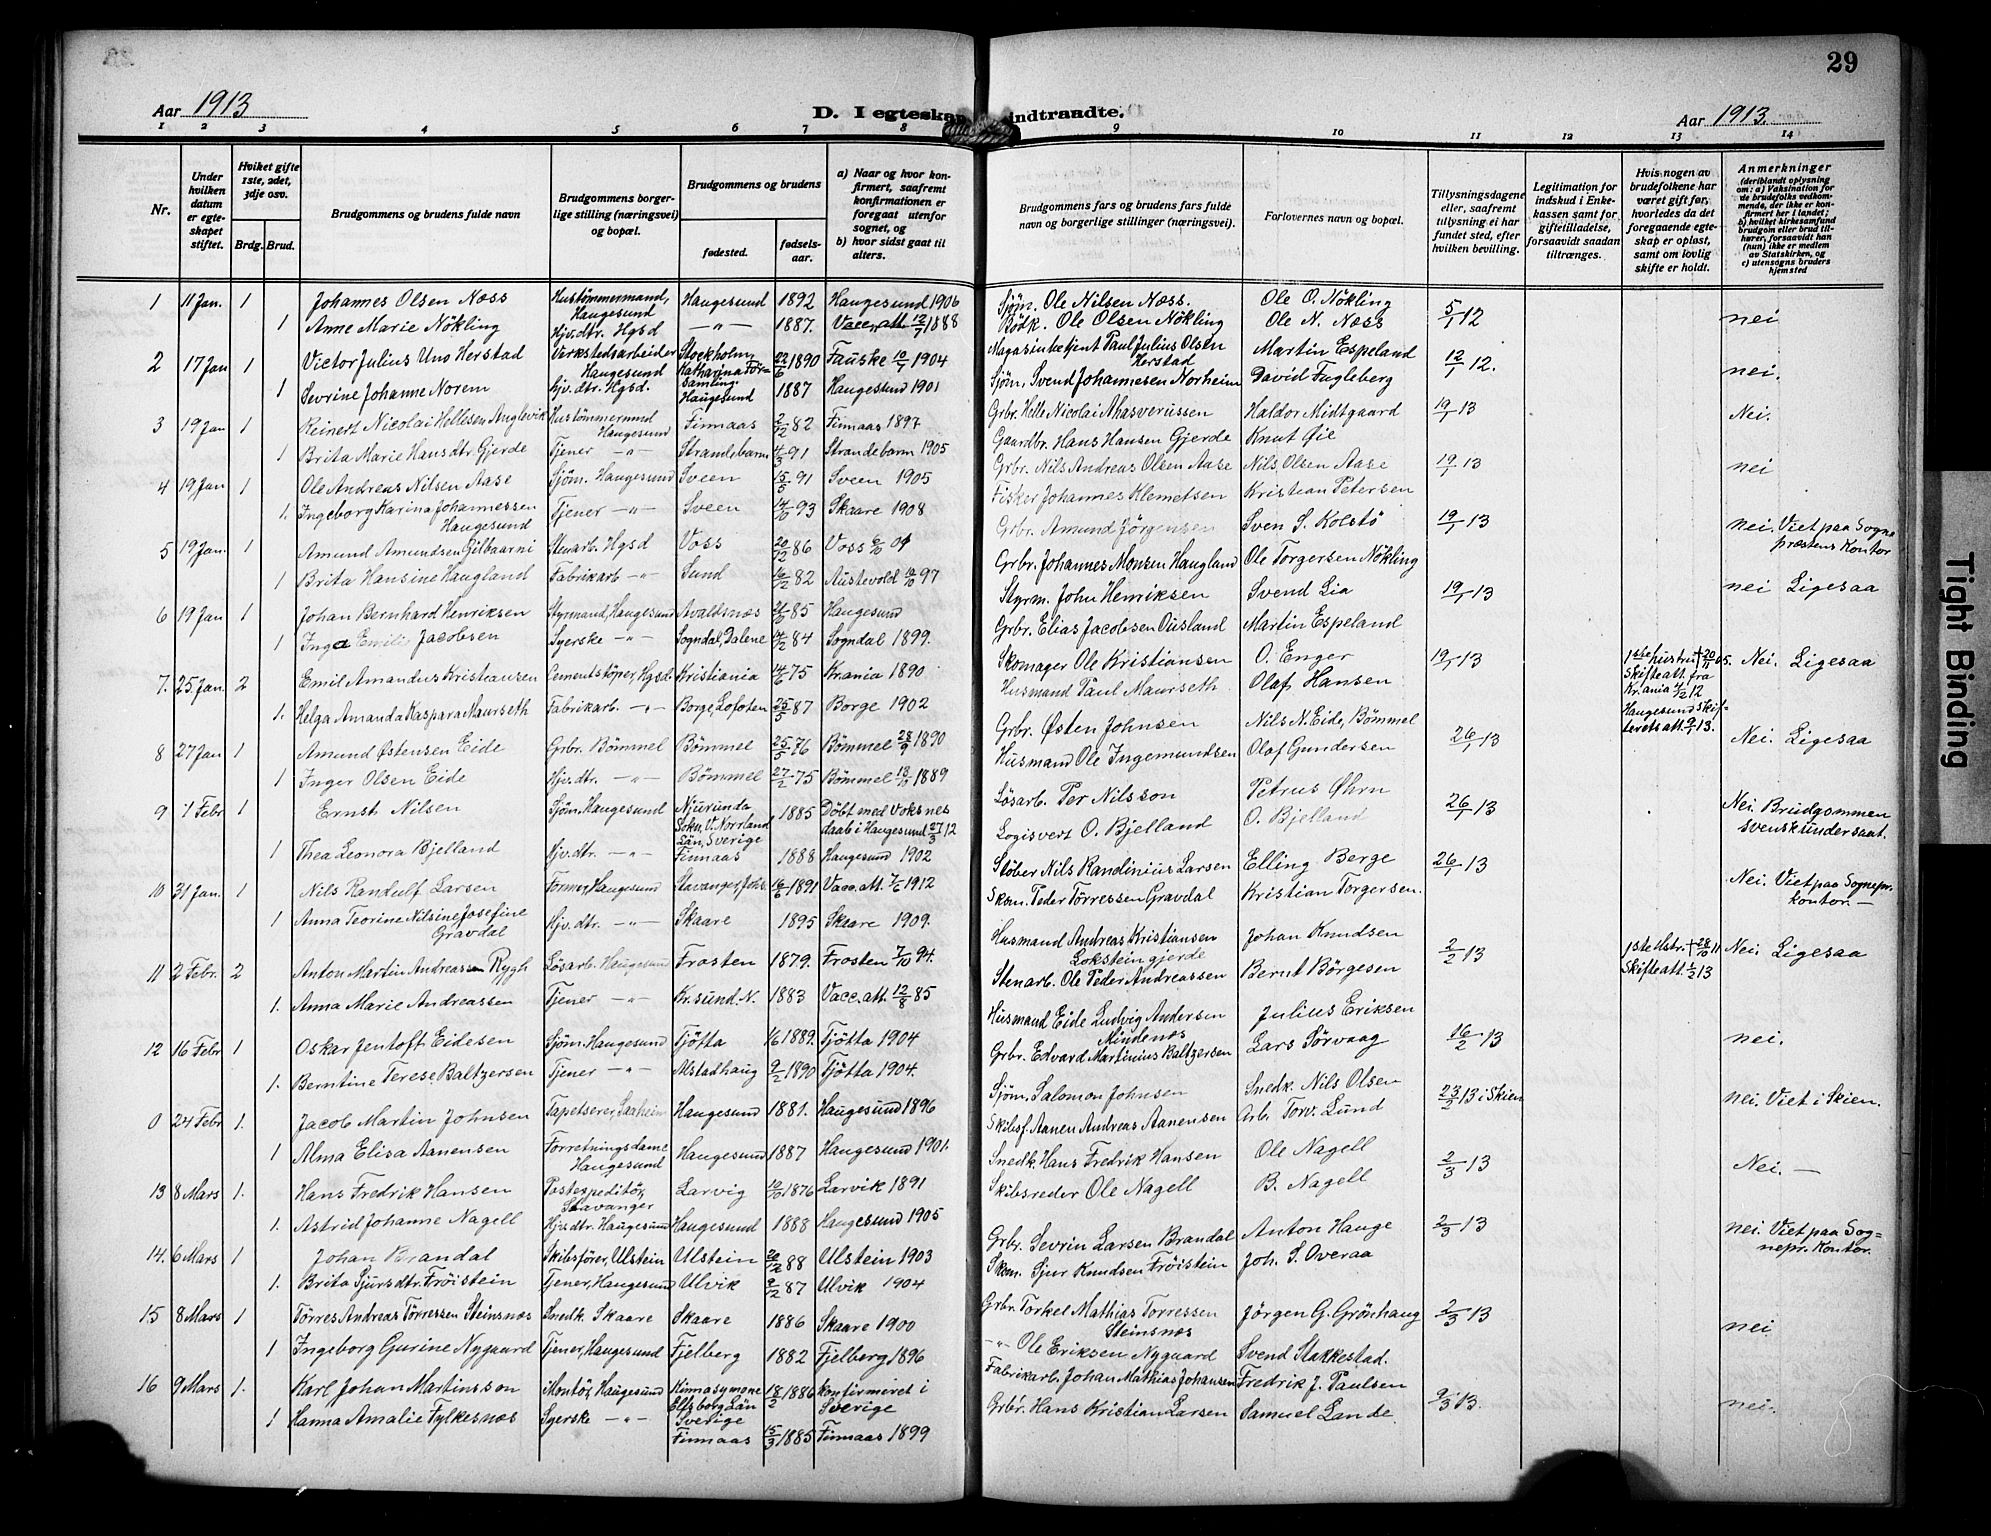 29
Aar 1913
D. I egteskap indtraadte.
Aar 1913.
1 2 3 4 5 6 7 8 9. 10 11 12 13 14
Nr.
Under hvilken datum er egteskapet stiftet.
Hvilket gifte 1ste, 2det, 3dje osv.
Brdg. Brud.
Brudgommens og brudens fulde navn
Brudgommens borgerlige stilling (næringsvei) og bopæl.
Brudgommens og brudens
fødested.
fødselsaar.
a) Naar og hvor konfirmert, saafremt konfirmationen er foregaat utenfor sognet, og
b) hvor sidst gaat til alters.
Brudgommens fars og brudens fars fulde navn og borgerlige stillinger (næringsvei).
Forlovernes navn og bopæl.
Tillysningsdagene eller, saafremt tillysning ei har fundet sted, efter hvilken bevilling.
Legitimation for indskud i Enkekassen samt for giftetilladelse, forsaavidt saadan tiltrænges.
Hvis nogen av brudefolkene har været gift før, hvorledes da det foregaaende egteskap er opløst, samt om lovlig skifte er holdt.
Anmerkninger
(deriblandt oplysning om: a) Vaksination for de brudefolks vedkommende, der ikke er konfirmert her i landet; b) hvilket kirkesamfund brudgom eller brud tilhører, forsaavidt han (hun) ikke er medlem av Statskirken, og c) utensogns bruders hjemsted
1 11 Jan. 1 Johannes Olsen Næss Hustömmermand, Haugesund Haugesund 1892 Haugesund 1906 Sjöm. Ole Nilsen Næss. Ole O. Nökling 5/1 12 nei
1 Anne Marie Nökling Hjv. dtr. Hgsd —"— 1887. Vacc. att. 12/7 1888 Bödk. Ole Olsen Nökling Ole N. Næss
2 17 Jan 1 Victor Julius Uno Herstad Verkstedsarbeider Haugesund Stockholm, Katharina Församling. 22/6 1890 Fauske 10/7 1904 Magasinbetjent Paul Julius Olsen Herstad Martin Espeland 12/1 12. nei.
1 Sevrine Johanne Norem Hjv. dtr. Hgsd. Haugesund 1887 Haugesund 1901 Sjöm. Svend Johannesen Norheim David Fugleberg
3 19 Jan 1 Reinert Nicolai Hellesen Auglevik Hustömmermnd Haugesund Finnaas 2/12 82 Finnaas 1897 Grbr. Helle Nicolai Ahasverussen Haldor Midtgaard 19/1 13 Nei.
1 Brita Marie Hansdtr Gjerde Tjener —"— Strandebarm 4/3 91 Strandebarm 1905 Gaardbr. Hans Hansen Gjerde Knut Øie
4 19 Jan 1 Ole Andreas Nilsen Aase Sjöm. Haugesund Sveen 15/5 91 Sveen 1905 Grbr. Nils Andreas Olsen Aase Nils Olsen Aase 19/1 13 nei
1. Ingeborg Karina Johannessen Haugesund Tjener —"— Sveen 14/10 93 Skaare 1908 Fisker Johannes Klemetsen Kristian Petersen
5 19 Jan. 1 Amund Amundsen Gilbaarni Stenarb. Hgsd Voss 20/12 86 Voss 6/10 01 Grbr. Amund Jörgensen Sven S. Kolstö 19/1 13 nei. Viet paa Sogne præstens Kontor
1 Brita Hansine Haugland Fabrikarb —"— Sund 16/12 82 Austevold 10/10 97 Grbr. Johannes Monsen Haugland Ole Torgersen Nökling
6 19 Jan 1 Johan Bernhard Henriksen Styrmand, Haugesund Avaldsnæs 85 Haugesund Styrm. John Henriksen Svend Lia 19/1 13 nei Ligesaa
1 Inga Emilie Jacobsen Syerske —"— Sogndal, Dalene 14/12 84 Sogndal 1899. Grbr. Elias Jacobsen Ousland Martin Espeland
7. 25. Jan. 2 Emil Amandus Kristiansen Cementstöper, Hgsd. Kristiania 14/6 75 Krania 1890 Skomager Ole Kristiansen O. Enger 19/1 13 1ste hustru † 20/11 05. Skifteatt. fra Kr.ania 5/12 12 Haugesund Skifteretsatt. 9/1 13. Nei. Ligesaa
1. Helga Amanda Kaspara Maurseth Fabrikarb. —"— Borge, Lofoten 25/5 87 Borge 1902 Husmand Paul Maurseth Olaf Hansen
8 27 Jan 1 Amund Østensen Eide Grbr. Bömmel Bömmel 25/5 76 Bömmel 28/9 1890 Grbr. Østen Johnsen Nils N. Eide, Bömmel 26/1 13 Nei. Ligesaa
1 Inger Olsen Eide Hjv. dtr. —"— Bömmel 27/2 75 Bömmel 1889 Husmand Ole Ingemundsen Olaf Gundersen
9 1 Febr 1 Ernst Nilsen Sjöm. Haugesund Njurunda Sokn, V. Norrland Län, Sverige 1885 Döbt med Voksnes daab i Haugesund 27/3 12 Lösarb. Per Nilsson Petrus Øhrn 26/1 13 Nei. Brudgommen svensk undersaat.
1 Thea Leonora Bjelland Hjv. dtr. —"— Finnaas 1888 Haugesund 1902 Logisvert O. Bjelland O. Bjelland
10 31 Jan. 1 Nils Randulf Larsen Former, Haugesund Stavanger, Johs. 16/6 1891 Vacc. att. 7/5 1912 Stöber Nils Randinius Larsen Elling Berge 26/1 13 Nei. Viet paa Sognepr. kontor. —
1 Anna Teorine Nilsine Josefine Gravdal Hjv. dtr. —"— Skaare 1895 Skaare 1909. Skom. Peder Törressen Gravdal Kristian Torgersen.
11 2 Febr. 2 Anton Martin Andreassen Rygh Lösarb. Haugesund Frosten 1879. Frosten 7/10 94. Husmand Andreas Kristiansen Loksteingjerde Johan Knudsen 2/2 13 1ste Hstr. † 28/10 11 Skifteatt. 1/2 13 Nei. Ligesaa
1. Anna Marie Andreassen Tjener —"— Kr.sund. N. 1883 Vacc. att. 12/8 85 Stenarb. Ole Peder Andreassen Bernt Börgesen
12 16 Febr 1 Oskar Jentoft Eidesen Sjöm. Haugesund Tjötta 1889. Tjötta 1904 Husmand Eide Ludvig Andersen Mindenæs Julius Eriksen 16/2 13 nei.
1. Berntine Terese Baltzersen Tjener —"— Alstadhaug 9/2 1890 Tjötta 1904. Grbr. Edvard Martinius Baltzersen Lars Sörvaag
0 24 Febr 1. Jacob Martin Johnsen Tapetserer, Saxheim Haugesund 1881. Haugesund 1896 Sjöm. Salomon Johnsen Snedk. Nils Olsen 23/2 13 i Skien nei. Viet i Skien.
1 Alma Elisa Aanensen Forretningsdame Haugesund Haugesund 1887 Haugesund 1901. Skibsf. Aanen Andreas Aanensen Arb. Torv. Lund
13 8 Mars 1. Hans Fredrik Hansen Postexpeditör, Stavanger Larvig 10/10 1876 Larvik 1891 Snedk. Hans Fredrik Hansen Ole Nagell 2/3 13 Nei. —
1. Astrid Johanne Nagell Hjv. dtr. Haugesund Haugesund 1888 Haugesund 1905 Skibsreder Ole Nagell B. Nagell
14. 6 Mars 1 Johan Brandal Skibsförer, Ulstein Ulstein 20/12 88 Ulstein 1903 Grbr. Sevrin Larsen Brandal Anton Hauge 2/3 13 nei. Viet paa Sognepr. Kontor.
1. Brita Sjursdtr. Fröistein Tjener, Haugesund Ulvik 9/12 87 Ulvik 1904 Skom. Sjur Knudsen Fröistein Joh. S. Overaa
15 8 Mars 1 Törres Andreas Törressen Steinsnæs Snedk. Skaare Skaare 1886 Skaare 1900 Grbr. Torkel Mathias Torressen Steinsnæs Jörgen G. Grönhaug 2/3 13 nei
1 Ingeborg Gurine Nygaard Tjener, Haugesund Fjelberg 1882 Fjelberg 1896 —"— Ole Eriksen Nygaard Svend Stakkestad.
16 9 Mars 1. Karl Johan Martinsson Montör, Haugesund Kinnasymone Elfsborg Län Sverige 18/2 1886 Konfirmeret i Sverige Fabrikarb. Johan Mathias Johansen Fredrik J. Paulsen 9/3 13. nei.
1 Hanna Amalie Fylkesnæs Syerske —"— Finnaas 15/3 1885 Finnaas 1899 Grbr. Hans Kristian Larsen Samuel Lande.
Tight Binding